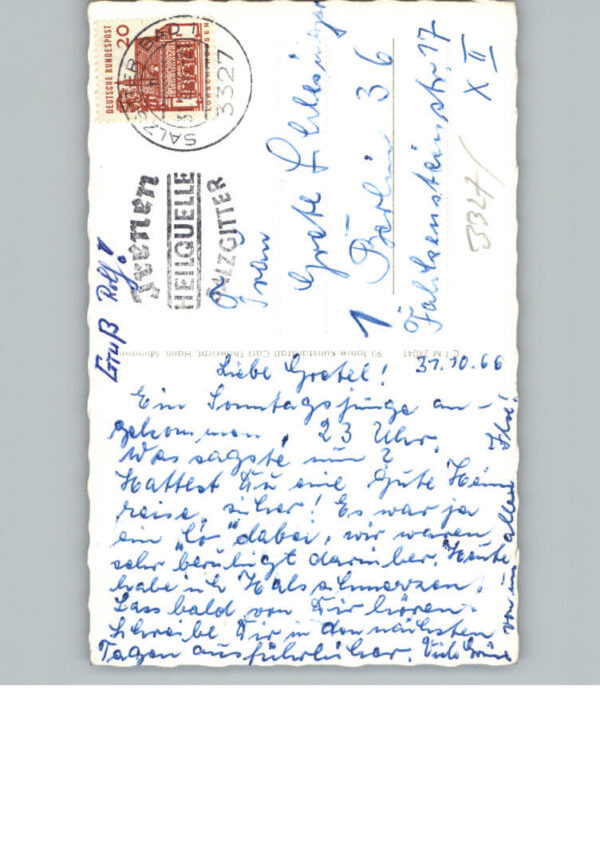 DEUTSCHE BUNDESPOST
20
SALZGITTER-BAD 1
3327
HEILQUELLE
SALZGITTER
Frau
Grete Schlesinger
1 Berlin 36
Falckensteinstr. 17
X II
3327
Gruß Rolf!
Liebe Gretel! 31.10.66
Ein Sonntagsjunge an-
gekommen, 23 Uhr.
Was sagste nun?
Hattest Du eine gute Heim
reise, sicher! Es war ja
ein "Lö" dabei, wir waren
sehr beruhigt darüber. Heute
habe ich Halsschmerzen.
Lass bald von Dir hören.
Schreibe Dir in den nächsten
Tagen ausführlicher. Viele Grüße
von uns allen